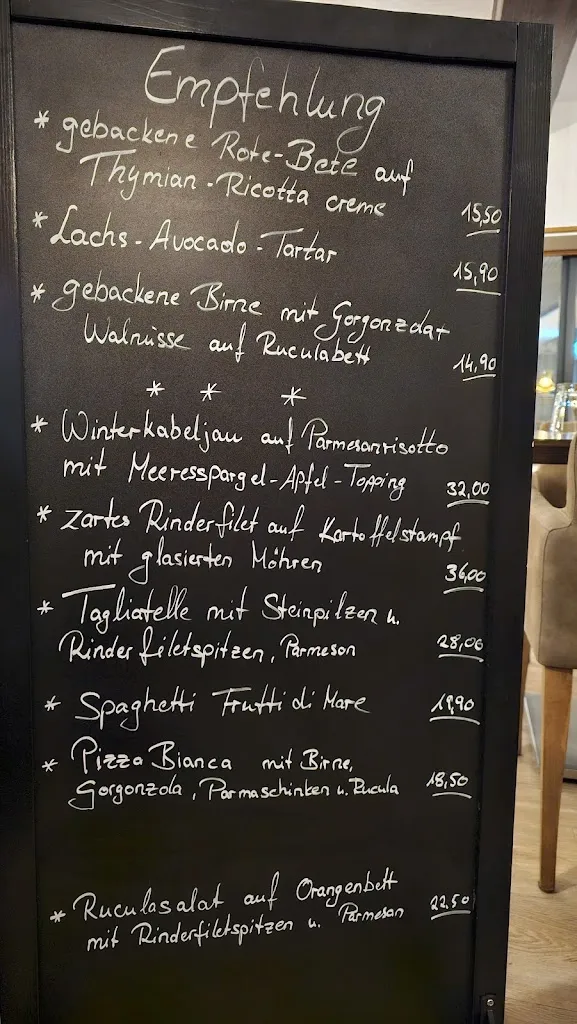 Empfehlung
* gebackene Rote-Bete auf
Thymian-Ricotta creme 15,50
* Lachs-Avocado-Tartar 15,90
* gebackene Birne mit Gorgonzola +
Walnüsse auf Ruculabett 14,90
* * *
* Winterkabeljau auf Parmesanrisotto
mit Meeresspargel-Apfel-Topping 32,00
* zartes Rinderfilet auf Kartoffelstampf
mit glasierten Möhren 36,00
* Tagliatelle mit Steinpilzen u.
Rinderfiletspitzen, Parmeson 28,00
* Spaghetti Frutti di Mare 19,90
* Pizza Bianca mit Birne,
Gorgonzola, Parmaschinken u. Rucula 18,50
* Ruculasalat auf Orangenbett 22,50
mit Rinderfiletspitzen u. Parmesan